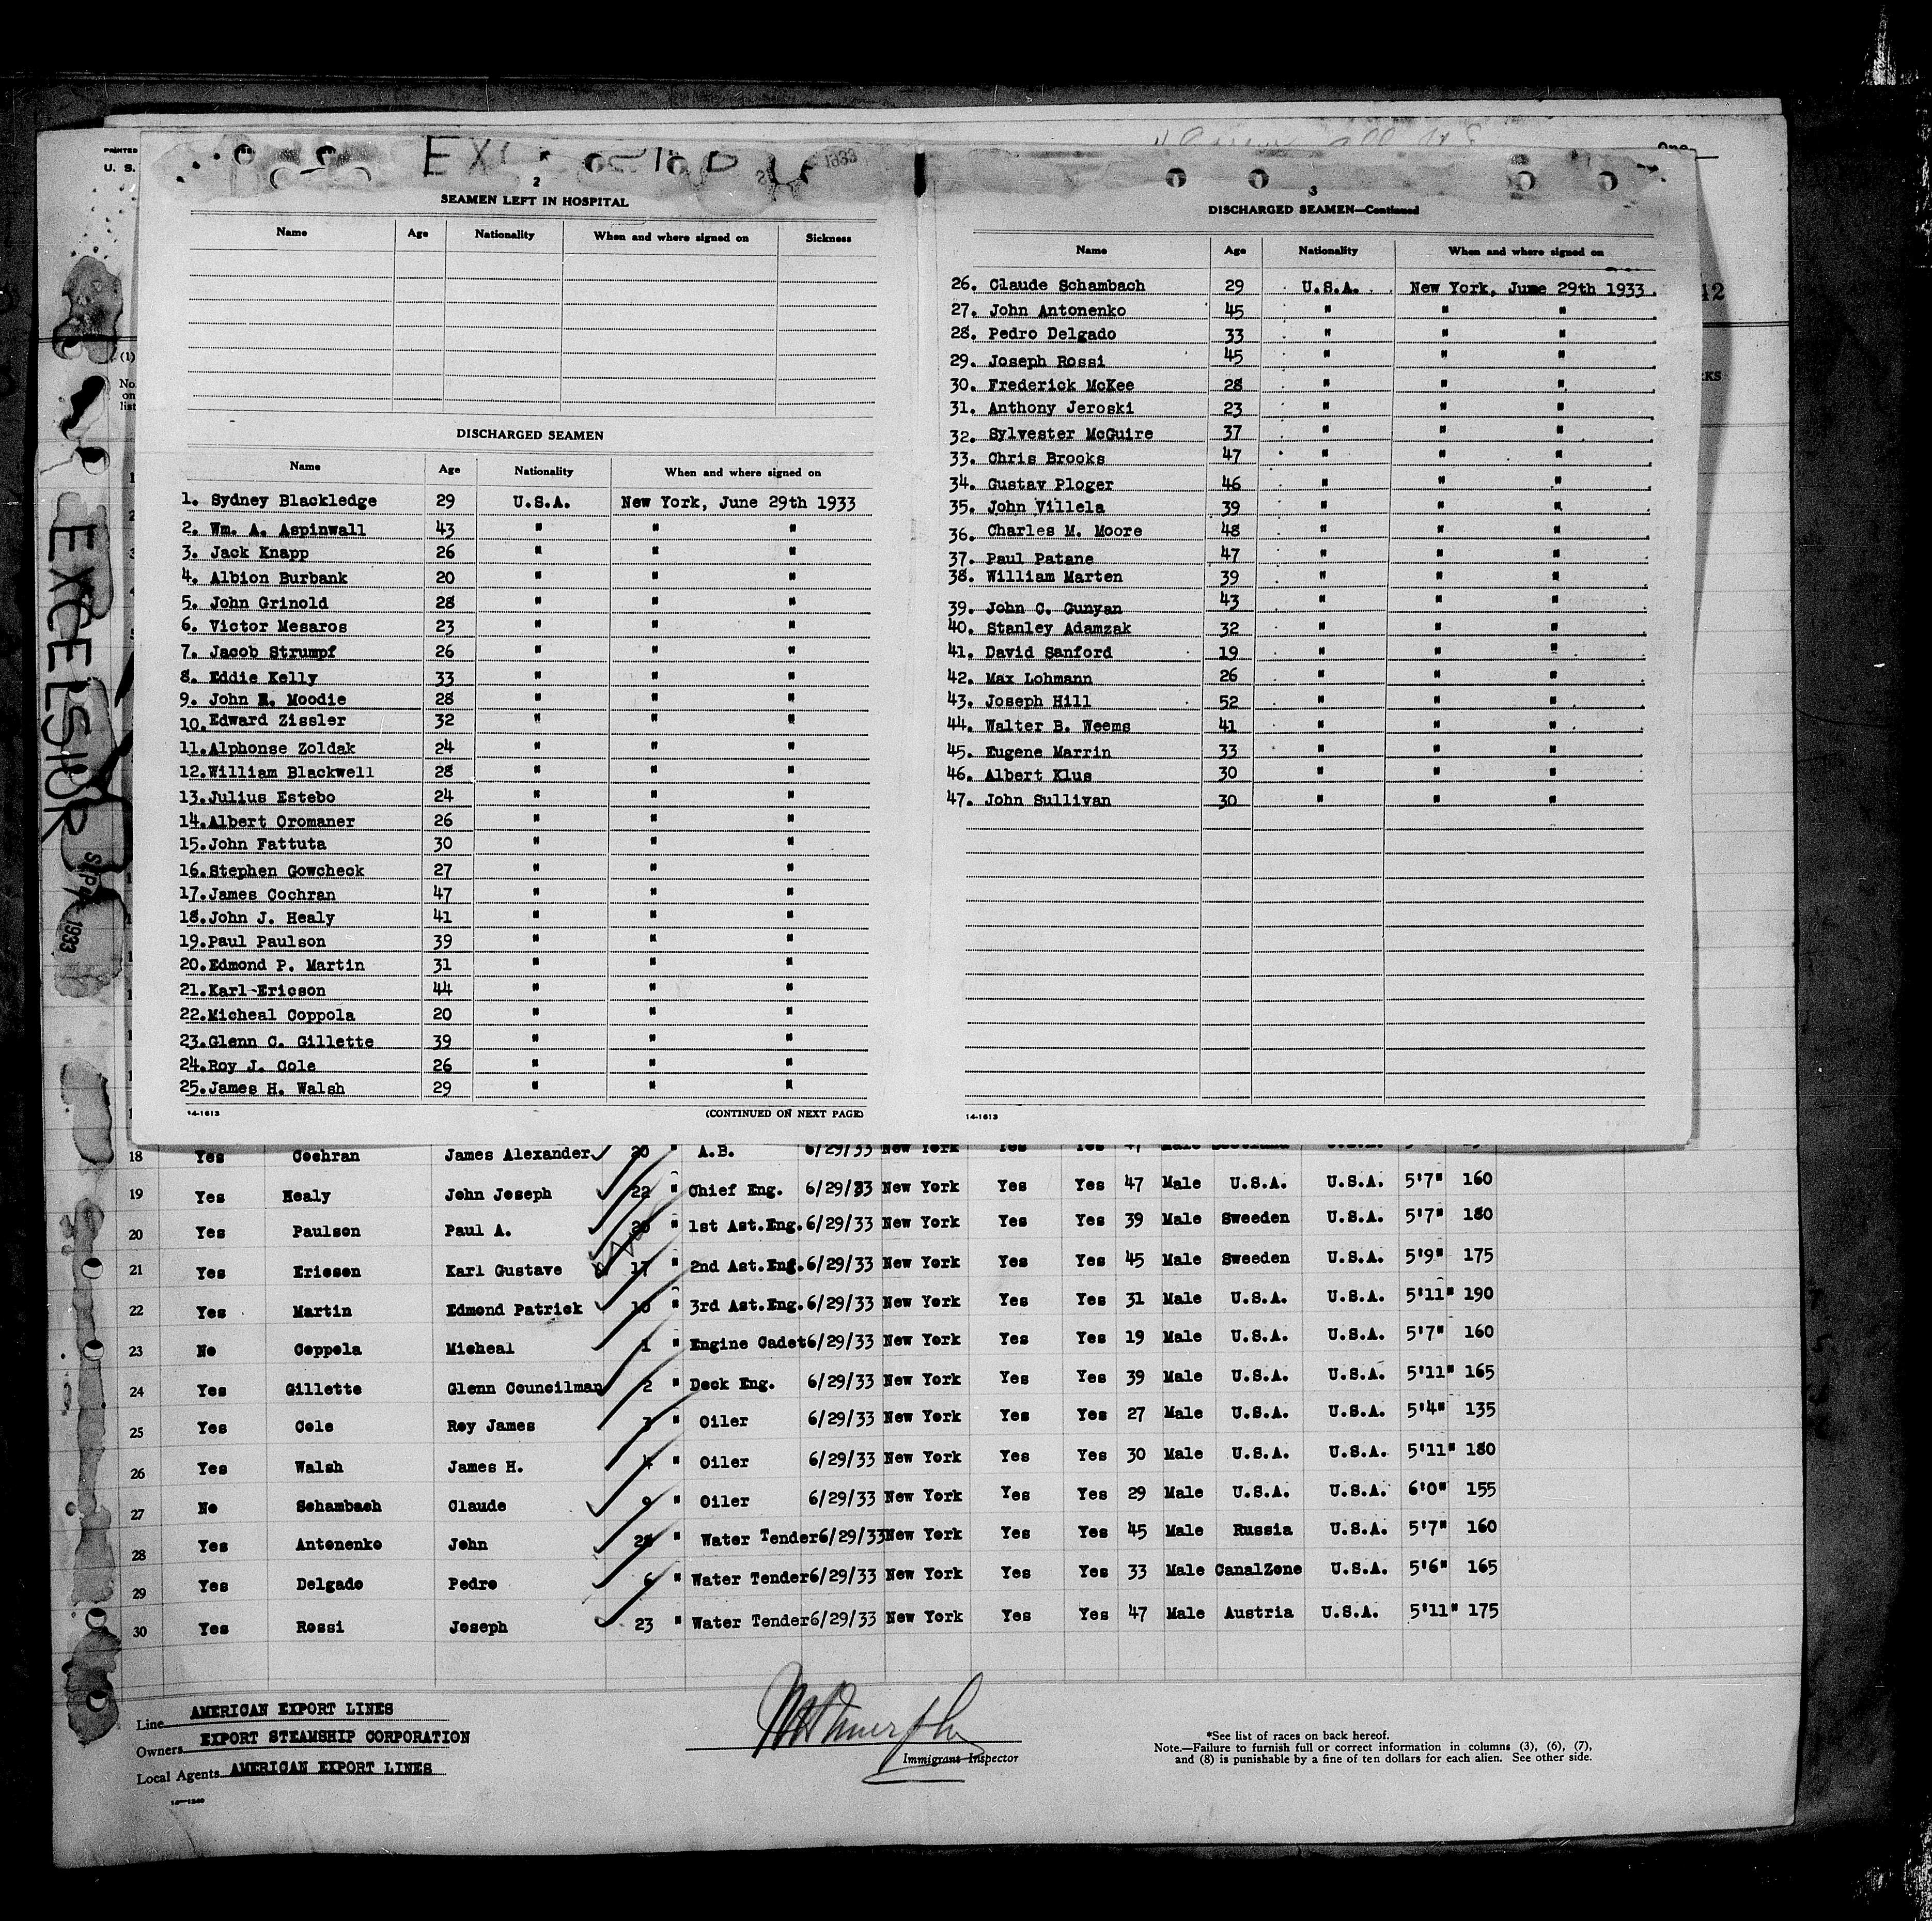 PRINTED
U. S.
One
2
SEAMEN LEFT IN HOSPITAL
Name Age Nationality When and where signed on Sickness
DISCHARGED SEAMEN
Name Age Nationality When and where signed on
1. Sydney Blackledge 29 U.S.A. New York, June 29th 1933
2. Wm. A. Aspinwall 43 " " "
3. Jack Knapp 26 " " "
4. Albion Burbank 20 " " "
5. John Grinold 28 " " "
6. Victor Mesaros 23 " " "
7. Jacob Strumpf 26 " " "
8. Eddie Kelly 33 " " "
9. John R. Moodie 28 " " "
10. Edward Zissler 32 " " "
11. Alphonse Zoldak 24 " " "
12. William Blackwell 28 " " "
13. Julius Estebo 24 " " "
14. Albert Oromaner 26 " " "
15. John Fattuta 30 " " "
16. Stephen Gowcheck 27 " " "
17. James Cochran 47 " " "
18. John J. Healy 41 " " "
19. Paul Paulson 39 " " "
20. Edmond P. Martin 31 " " "
21. Karl Ericson 44 " " "
22. Micheal Coppola 20 " " "
23. Glenn C. Gillette 39 " " "
24. Roy J. Cole 26 " " "
25. James H. Walsh 29 " " "
14-1613 (CONTINUED ON NEXT PAGE)
3
DISCHARGED SEAMEN—Continued
Name Age Nationality When and where signed on
26. Claude Schambach 29 U.S.A. New York, June 29th 1933.
27. John Antonenko 45 " " "
28. Pedro Delgado 33 " " "
29. Joseph Rossi 45 " " "
30. Frederick McKee 28 " " "
31. Anthony Jeroski 23 " " "
32. Sylvester McGuire 37 " " "
33. Chris Brooks 47 " " "
34. Gustav Ploger 46 " " "
35. John Villela 39 " " "
36. Charles M. Moore 48 " " "
37. Paul Patane 47 " " "
38. William Marten 39 " " "
39. John C. Gunyan 43 " " "
40. Stanley Adamzak 32 " " "
41. David Sanford 19 " " "
42. Max Lohmann 26 " " "
43. Joseph Hill 52 " " "
44. Walter B. Weems 41 " " "
45. Eugene Marrin 33 " " "
46. Albert Klus 30 " " "
47. John Sullivan 30 " " "
14-1613
(1)
No.
on
list
EXCELSIOR
SEP 1933
18 Yes Cochran James Alexander 20 " A.B. 6/29/33 New York Yes Yes 47 Male
19 Yes Healy John Joseph 22 " Chief Eng. 6/29/33 New York Yes Yes 47 Male U.S.A. U.S.A. 5'7" 160
20 Yes Paulson Paul A. 20 " 1st Ast.Eng. 6/29/33 New York Yes Yes 39 Male Sweeden U.S.A. 5'7" 180
21 Yes Ericson Karl Gustave 17 " 2nd Ast.Eng. 6/29/33 New York Yes Yes 45 Male Sweeden U.S.A. 5'9" 175
22 Yes Martin Edmond Patrick 10 " 3rd Ast.Eng. 6/29/33 New York Yes Yes 31 Male U.S.A. U.S.A. 5'11" 190
23 No Coppola Micheal 1 " Engine Cadet 6/29/33 New York Yes Yes 19 Male U.S.A. U.S.A. 5'7" 160
24 Yes Gillette Glenn Councilman 2 " Deck Eng. 6/29/33 New York Yes Yes 39 Male U.S.A. U.S.A. 5'11" 165
25 Yes Cole Roy James 3 " Oiler 6/29/33 New York Yes Yes 27 Male U.S.A. U.S.A. 5'4" 135
26 Yes Walsh James H. 4 " Oiler 6/29/33 New York Yes Yes 30 Male U.S.A. U.S.A. 5'11" 180
27 No Schambach Claude 9 " Oiler 6/29/33 New York Yes Yes 29 Male U.S.A. U.S.A. 6'0" 155
28 Yes Antonenko John " Water Tender 6/29/33 New York Yes Yes 45 Male Russia U.S.A. 5'7" 160
29 Yes Delgado Pedro 6 " Water Tender 6/29/33 New York Yes Yes 33 Male CanalZone U.S.A. 5'6" 165
30 Yes Rossi Joseph 23 " Water Tender 6/29/33 New York Yes Yes 47 Male Austria U.S.A. 5'11" 175
Line AMERICAN EXPORT LINES
Owners EXPORT STEAMSHIP CORPORATION
Local Agents AMERICAN EXPORT LINES
Immigrant Inspector
*See list of races on back hereof.
Note.—Failure to furnish full or correct information in columns (3), (6), (7),
and (8) is punishable by a fine of ten dollars for each alien. See other side.